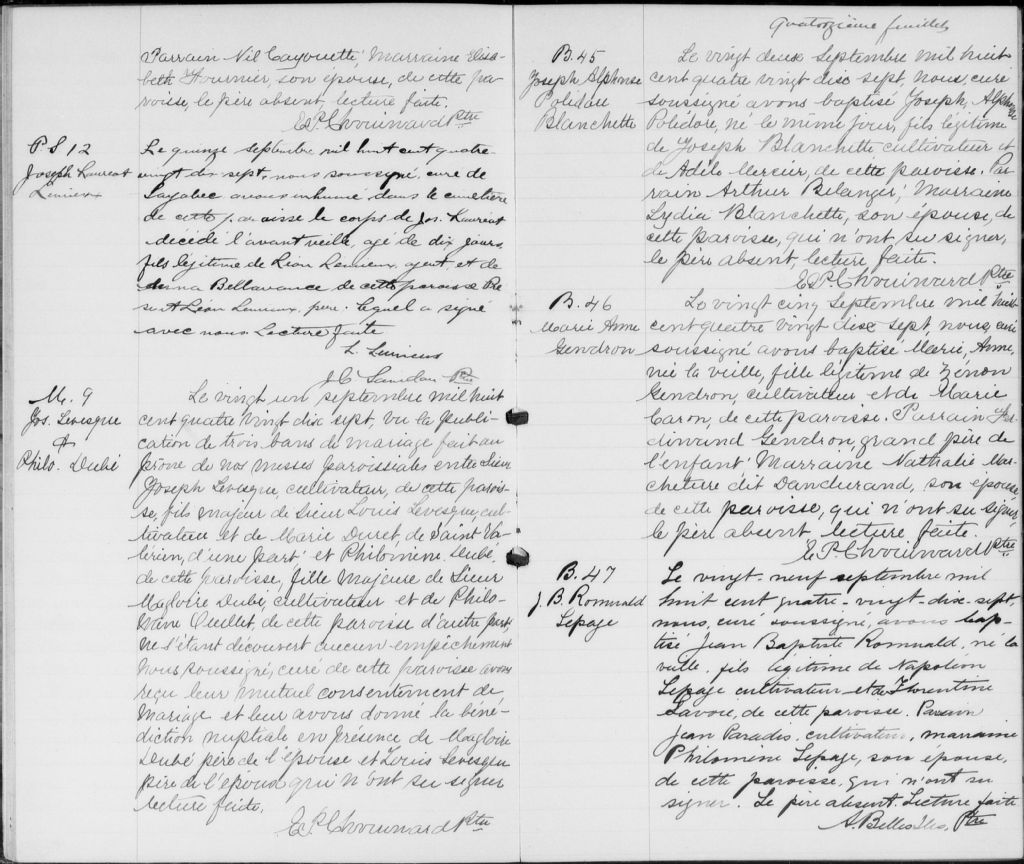 Parrain Nil Cayouette, Marraine Elisa-
beth Fournier, son épouse, de cette pa-
roisse, le père absent, lecture faite.
E.P. Chouinard Ptre
P S 12
Joseph Laureat
Lemieux
Le quinze septembre mil huit cent quatre-
vingt dix sept, nous soussigné, curé de
Sayabec avons inhumé dans le cimetière
de cette paroisse le corps de Jos. Laureat
décédé l'avant veille, agé de dix jours,
fils légitime de Léon Lemieux, agent, et de
Bellavance de cette paroisse Pré
sent Léon Lemieux, père lequel a signé
avec nous Lecture faite
L. Lemieux
Ptre
M. 9
Jos. Levesque
&
Philo. Dubé
Le vingt un septembre mil huit
cent quatre vingt dix sept, vu la publi-
cation de trois bans de mariage fait au
prône de nos messes paroissiales entre Sieur
Joseph Levesque, cultivateur, de cette parois-
se, fils majeur de Sieur Louis Levesque, cul-
tivateur et de Marie Duret, de Saint Va-
lérien, d'une part et Philomène Dubé,
de cette paroisse, fille Majeure de Sieur
Magloire Dubé, cultivateur et de Philo-
mène Ouellet, de cette paroisse d'autre part
ne s'étant découvert aucun empêchement
Nous soussigné, curé de cette paroisse avons
reçu leur mutuel consentement de
Mariage et leur avons donné la béné-
diction nuptiale en présence de Magloire
Dubé père de l'épouse et Louis Levesque
père de l'époux qui n'ont su signer
lecture faite.
E.P. Chouinard Ptre
Quatorzième feuillet
B. 45
Joseph Alphonse
Polidore
Blanchette
Le vingt deux Septembre mil huit
cent quatre vingt dix sept, nous, curé
soussigné avons baptisé Joseph, Alphonse
Polidore, né le même jour, fils légitime
de Joseph Blanchette cultivateur et
de Adèle Mercier, de cette paroisse. Par-
rain Arthur Belanger, Marraine
Lydia Blanchette, son épouse, de
cette paroisse, qui n'ont su signer,
le père absent, lecture faite.
E.P. Chouinard Ptre
B. 46
Marie Anne
Gendron
Le vingt cinq Septembre mil huit
cent quatre vingt dix sept, nous, curé
soussigné avons baptisé Marie, Anne,
née la veille, fille légitime de Zénon
Gendron, cultivateur et de Marie
Caron, de cette paroisse. Parrain Fer-
dinand Gendron, grand père de
l'enfant, Marraine Nathalie Mar-
cheterre dit Dandurand, son épouse
de cette paroisse, qui n'ont su signer,
le père absent, lecture faite.
E.P. Chouinard Ptre
B. 47
J. B. Romuald
Lepage
Le vingt-neuf septembre mil
huit cent quatre-vingt-dix-sept,
nous, curé soussigné, avons bap-
tisé Jean Baptiste Romuald, né la
veille, fils légitime de Napoléon
Lepage cultivateur et de Florentine
Lavoie, de cette paroisse. Parrain
Jean Paradis, cultivateur, marraine
Philomène Lepage, son épouse,
de cette paroisse, qui n'ont su
signer. Le père absent. Lecture faite
A. Belles Iles, Ptre